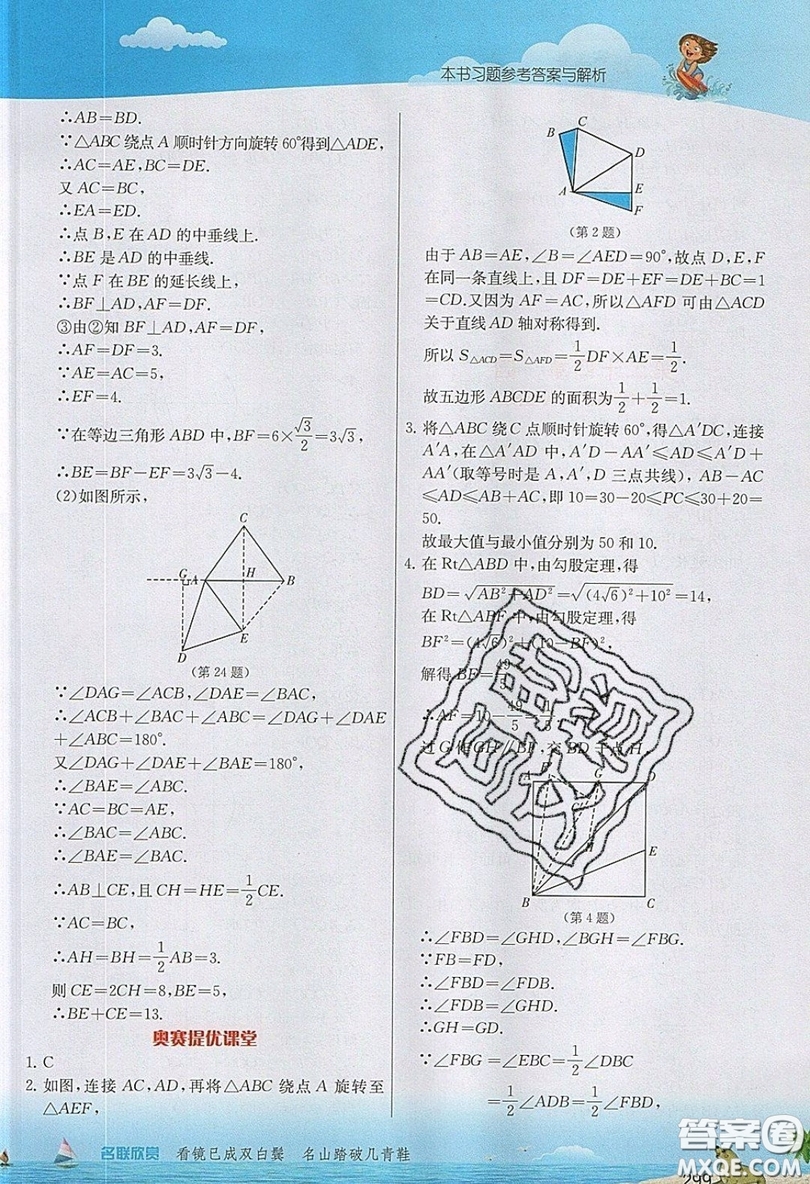 本书习题参考答案与解析
∴AB=BD.
∵△ABC绕点A顺时针方向旋转60°得到△ADE,
∴AC=AE,BC=DE.
又AC=BC,
∴EA=ED.
∴点B,E在AD的中垂线上.
∴BE是AD的中垂线.
∵点F在BE的延长线上,
∴BF⊥AD,AF=DF.
③由②知BF⊥AD,AF=DF,
∴AF=DF=3.
∵AE=AC=5,
∴EF=4.
∵在等边三角形ABD中,BF=6×√3/2=3√3,
∴BE=BF-EF=3√3-4.
(2)如图所示,
C
G A H B
E
D
(第24题)
∵∠DAG=∠ACB,∠DAE=∠BAC,
∴∠ACB+∠BAC+∠ABC=∠DAG+∠DAE
+∠ABC=180°.
又∠DAG+∠DAE+∠BAE=180°,
∴∠BAE=∠ABC.
∵AC=BC=AE,
∴∠BAC=∠ABC.
∴∠BAE=∠BAC.
∴AB⊥CE,且CH=HE=1/2CE.
∵AC=BC,
∴AH=BH=1/2AB=3.
则CE=2CH=8,BE=5,
∴BE+CE=13.
奥赛提优课堂
1. C
2. 如图,连接AC,AD,再将△ABC绕点A旋转至
△AEF,
B C
D
A E
F
(第2题)
由于AB=AE,∠B=∠AED=90°,故点D,E,F
在同一条直线上,且DF=DE+EF=DE+BC=1
=CD.又因为AF=AC,所以△AFD可由△ACD
关于直线AD轴对称得到.
所以S△ACD=S△AFD=1/2DF×AE=1/2.
故五边形ABCDE的面积为1/2+1/2=1.
3. 将△ABC绕C点顺时针旋转60°,得△A′DC,连接
A′A,在△A′AD中,A′D-AA′≤AD≤A′D+
AA′(取等号时是A,A′,D三点共线),AB-AC
≤AD≤AB+AC,即10=30-20≤PC≤30+20=
50.
故最大值与最小值分别为50和10.
4. 在Rt△ABD中,由勾股定理,得
BD=√AB²+AD²=√(4√6)²+10²=14,
在Rt△ABF中,由勾股定理,得
BF²=(4√6)²+(10-BF)²,
解得BF=49/5,
∴AF=10-49/5=1/5.
过G作GH∥BF,交BD于点H,
G
H
E
B C
(第4题)
∴∠FBD=∠GHD,∠BGH=∠FBG.
∵FB=FD,
∴∠FBD=∠FDB.
∴∠FDB=∠GHD.
∴GH=GD.
∵∠FBG=∠EBC=1/2∠DBC
=1/2∠ADB=1/2∠FBD,
名联欣赏 看镜已成双白鬓 名山踏破几青鞋
答案圈
MXQE.COM